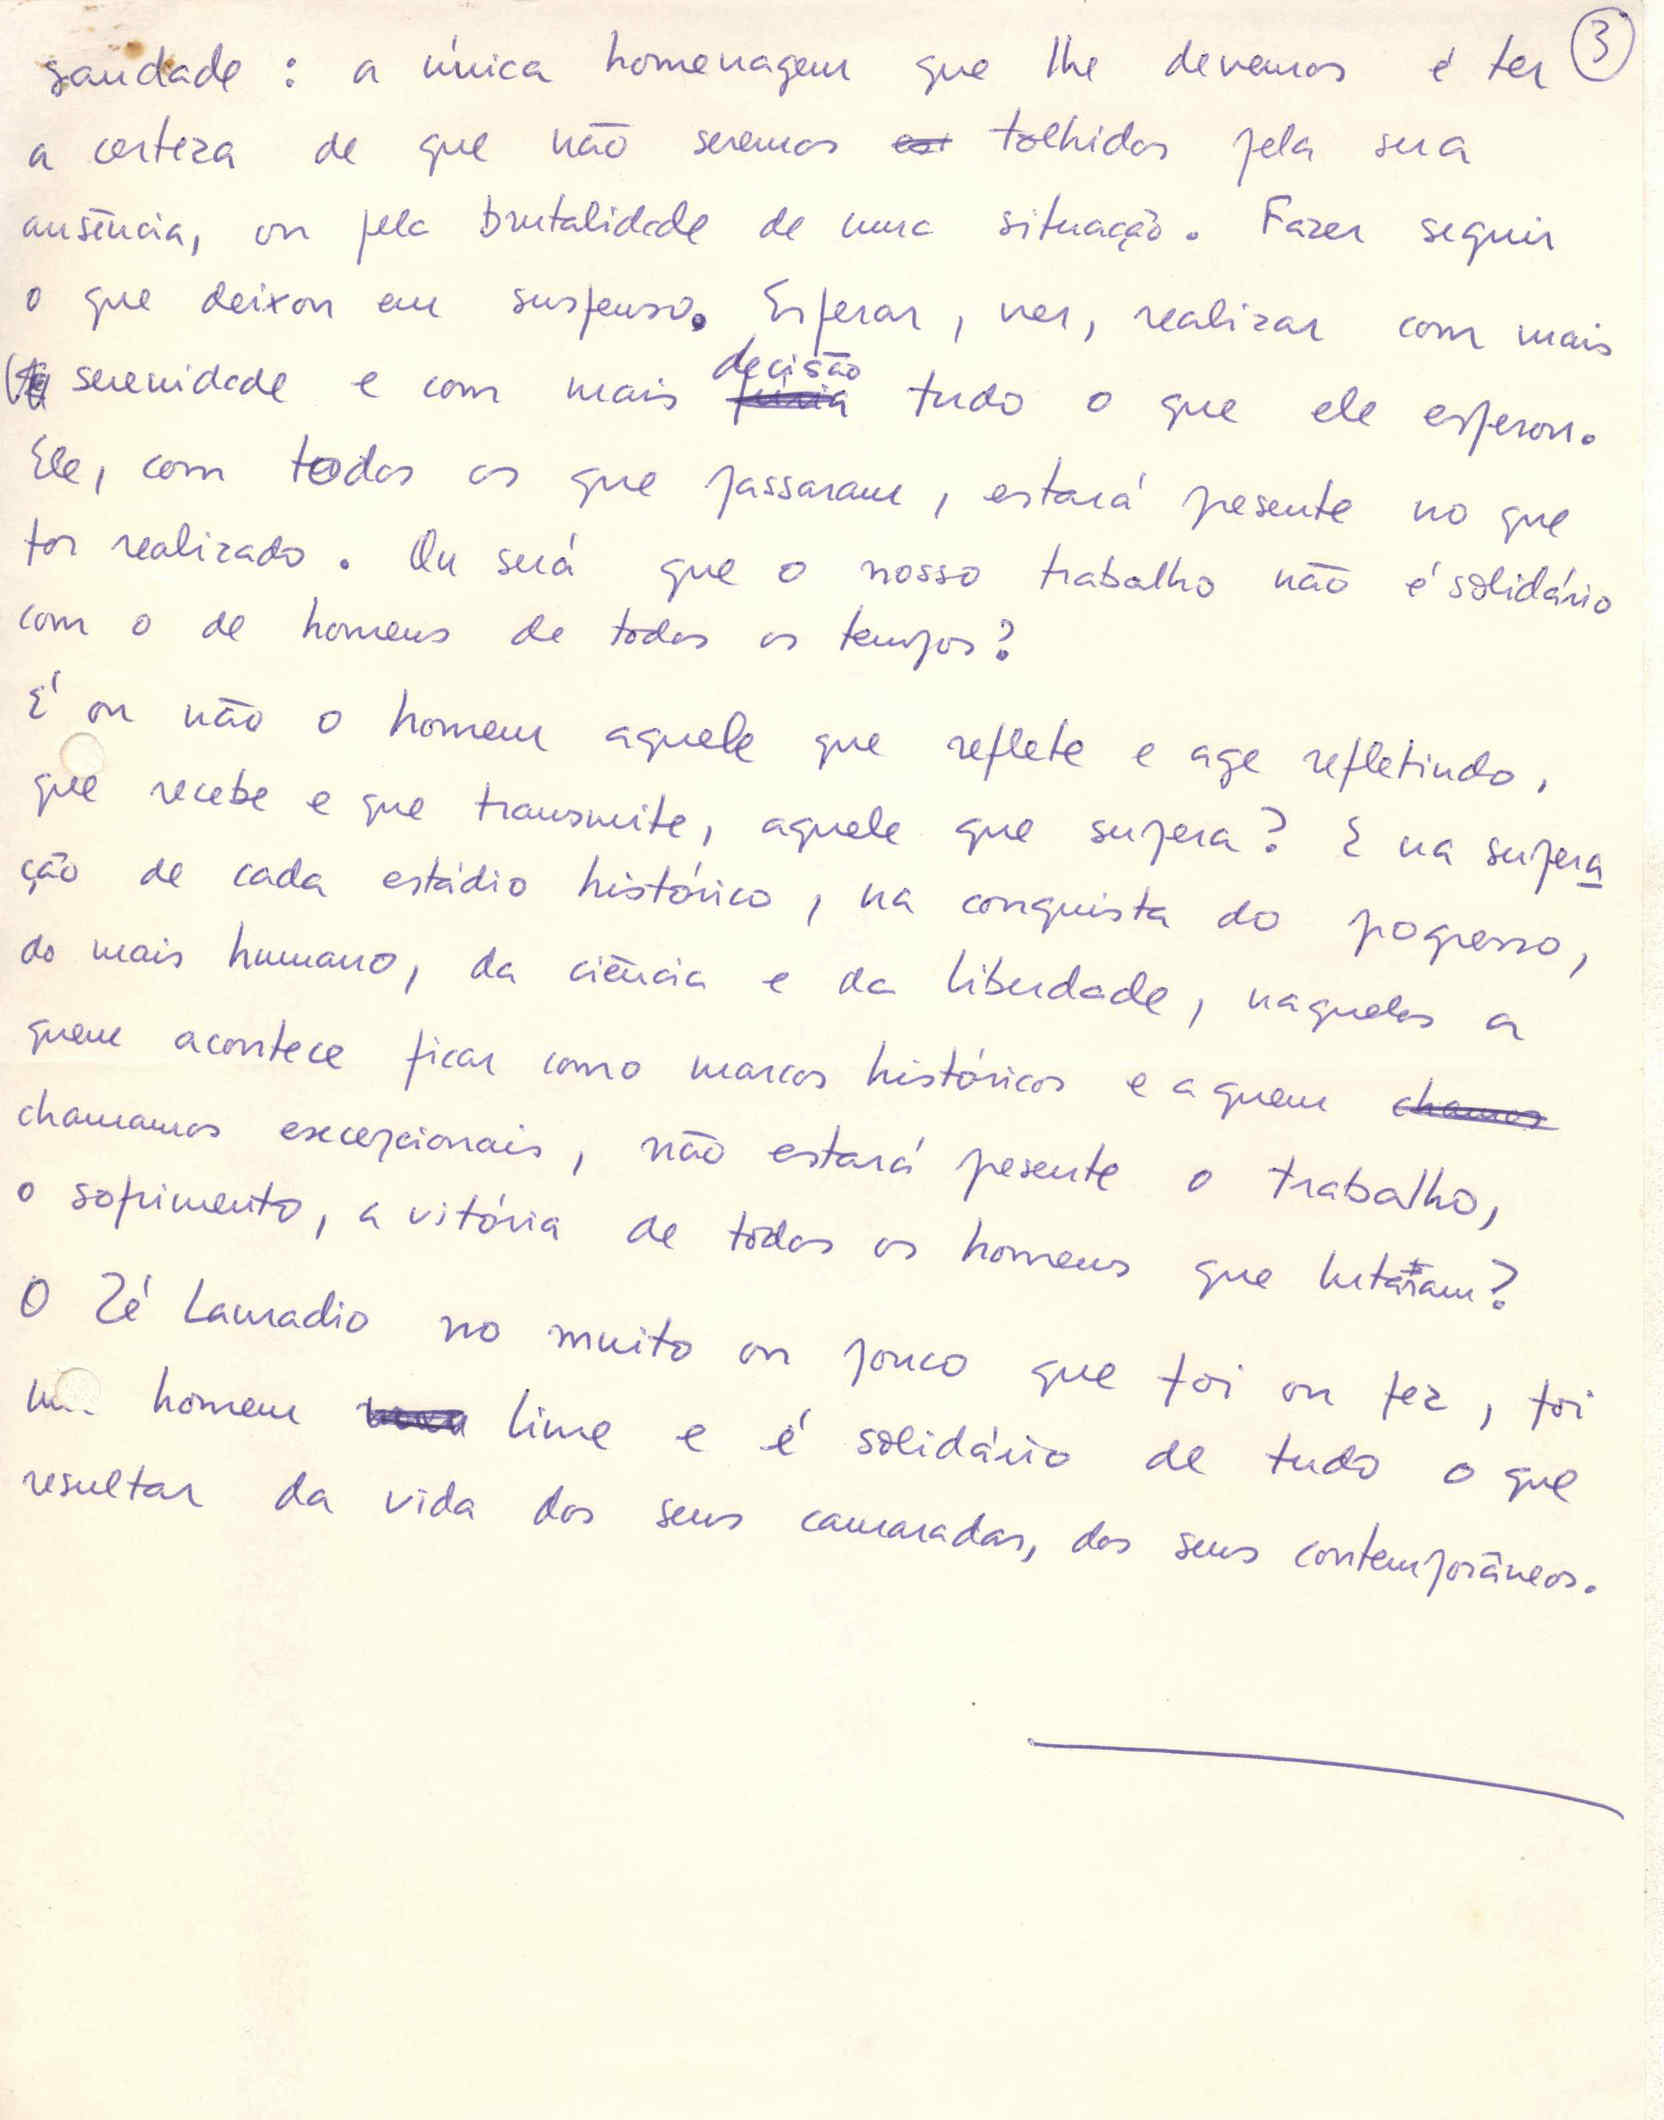 3
saudade : a única homenagem que lhe devemos é ter
a certeza de que não seremos est tolhidos pela sua
ausência, ou pela brutalidade de uma situação. Fazer seguir
o que deixou em suspenso. Esperar, ver, realizar com mais
decisão
serenidade e com mais fúria tudo o que ele esperou.
Ele, com todos os que passaram, estará presente no que
for realizado. Ou será que o nosso trabalho não é solidário
com o de homens de todos os tempos?
É ou não o homem aquele que reflete e age refletindo,
que recebe e que transmite, aquele que supera? E na supera
ção de cada estádio histórico, na conquista do progresso,
do mais humano, da ciência e da liberdade, naqueles a
quem acontece ficar como marcos históricos e a quem chamos
chamamos excepcionais, não estará presente o trabalho,
o sofrimento, a vitória de todos os homens que lutaram?
O Zé Lamradio no muito ou pouco que foi ou fez, foi
homem livre e é solidário de tudo o que
resultar da vida dos seus camaradas, dos seus contemporâneos.